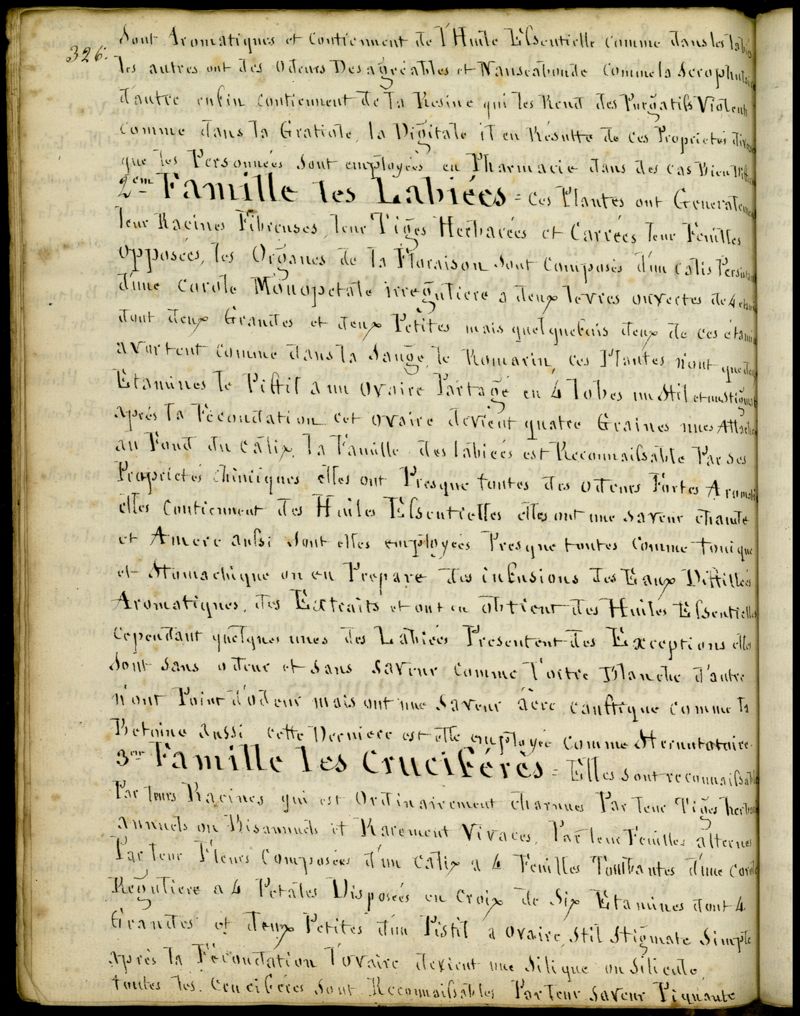 326.
Sont Aromatiques et Contiennent de l'Huile Essentielle Comme dans les labiées
les autres ont des Odeurs Desagreables et Nauseabonde Comme la Scrophulaire
d'autre enfin Contiennent de la Resine qui les Rend des Purgatifs Violents
Comme dans la Gratiole, la Digitale il en Résulte de ces Proprietés
que les Personnées sont employées en Pharmacie dans des cas Bien
2em Famille les Labiées = Ces Plantes ont Generalement
leur Racines Fibreuses, leur Tiges Herbacées et Carrées leur Feuilles
Opposées, les Organes de la Floraison sont Composés d'un Calis Persistant
d'une Corole Monopetale irreguliere a deux levres ouvertes de 4 etamines
dont deux Grandes et deux Petites mais quelquefois deux de ces étamines
avortent Comme dans la Sauge, le Romarin, ces Plantes n'ont que deux
Etamines le Pistil a un Ovaire Partagé en 4 lobes un Stil et un Stigmate
après la Fecondation cet Ovaire devient quatre Graines nues Attachées
au Fond du Calix, la Famille des labiées est Reconnaissable Par ses
Proprietés chimiques elles ont Presque toutes des odeurs Fortes Aromatiques
elles Contiennent des Huiles Essentielles elles ont une saveur chaude
et Amere aussi sont elles employées Presque toutes Comme tonique
et Stomachique on en Prepare des infusions des Eaux Distillées
Aromatiques, des Extraits et ont en obtient des Huiles Essentielles
Cependant quelques unes des Labiées Presentent des Exceptions elles
sont sans odeur et sans saveur Comme l'ortie Blanche d'autre
n'ont Point d'odeur mais ont une saveur âcre caustique Comme la
Betoine aussi cette Derniere est elle employée Comme Sternutatoire.
3em Famille les Crucifères = Elles sont reconnaissable
Par leurs Racines qui est Ordinairement charnues Par leur Tiges herbacées
annuels ou Bisannuels et Rarement Vivaces, Par leur Feuilles alternes
Par leur Fleurs Composées d'un Calix a 4 Feuilles Tombantes d'une Corole
Reguliere a 4 Petales Disposés en Croix de Six Etamines dont 4
Grandes et deux Petites d'un Pistil a Ovaire, Stil Stigmate Simple
après la Fécondation l'ovaire devient une Silique ou Silicule,
toutes les Crucifères Sont Reconnaissables Par leur Saveur Piquante